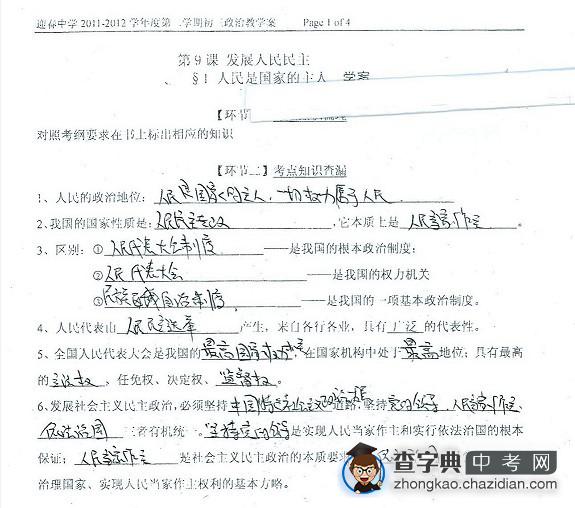 迎春中学 2011-2012 学年度第二学期初三政治教学案 Page 1 of 4
第 9 课 发展人民民主
§1 人民是国家的主人 学案
【环节
对照考纲要求在书上标出相应的知识
【环节二】考点知识查漏
1、人民的政治地位: 人民是国家的主人,一切权力属于人民
2、我国的国家性质是: 人民民主专政 ,它本质上是 人民当家作主 。
3、区别: ① 人民代表大会制度 ——是我国的根本政治制度;
② 人民代表大会 ——是我国的权力机关
③ 民族区域自治制度 ——是我国的一项基本政治制度。
4、人民代表由 人民民主选举 产生,来自各行各业,具有 广泛 的代表性。
5、全国人民代表大会是我国的 最高国家权力机关 ,在国家机构中处于 最高 地位;具有最高
的 立法权 、任免权、决定权、 监督权 。
6、发展社会主义民主政治,必须坚持 中国特色社会主义政治发展 道路,坚持 党的领导、人民当家作主、
依法治国 三者有机统一。坚持党的领导 是实现人民当家作主和实行依法治国的根本
保证; 人民当家作主 是社会主义民主政治的本质要求;
治理国家、实现人民当家作主权利的基本方略。
查字典中考网
zhongkao.chazidian.com